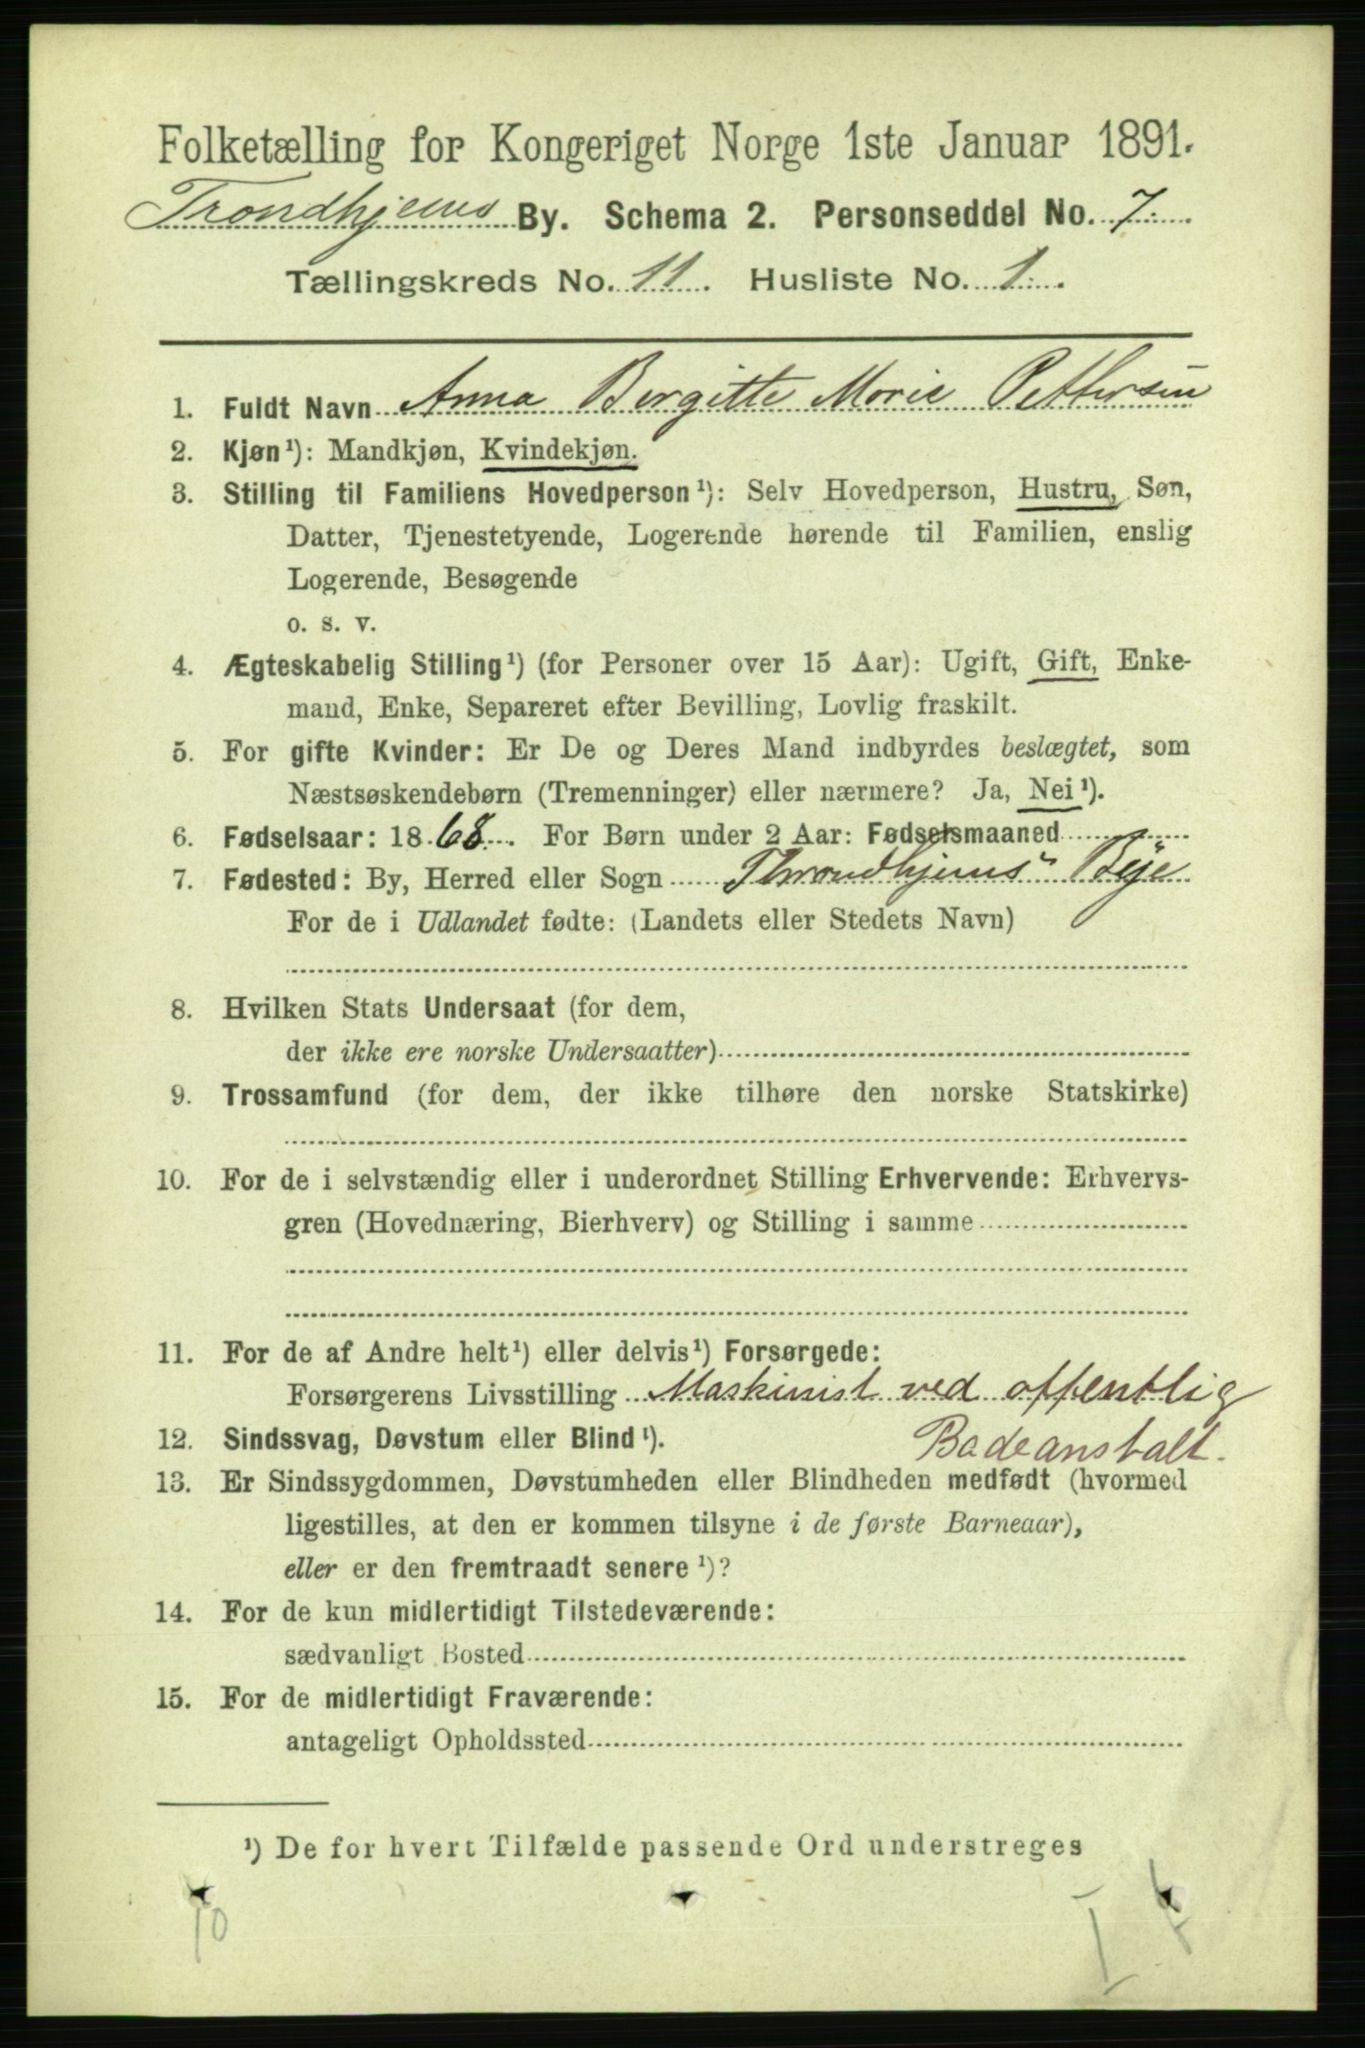 Folketælling for Kongeriget Norge 1ste Januar 1891.
Trondhjems By. Schema 2. Personseddel No. 7.
Tællingskreds No. 11. Husliste No. 1.
1. Fuldt Navn Anna Bergitte Marie Pettersen
2. Kjøn¹): Mandkjøn, Kvindekjøn.
3. Stilling til Familiens Hovedperson¹): Selv Hovedperson, Hustru, Søn,
Datter, Tjenestetyende, Logerende hørende til Familien, enslig
Logerende, Besøgende
o. s. v.
4. Ægteskabelig Stilling¹) (for Personer over 15 Aar): Ugift, Gift, Enke-
mand, Enke, Separeret efter Bevilling, Lovlig fraskilt.
5. For gifte Kvinder: Er De og Deres Mand indbyrdes beslægtet, som
Næstsøskendebørn (Tremenninger) eller nærmere? Ja, Nei¹).
6. Fødselsaar: 1868. For Børn under 2 Aar: Fødselsmaaned
7. Fødested: By, Herred eller Sogn Throndhjems Bye
For de i Udlandet fødte: (Landets eller Stedets Navn)
8. Hvilken Stats Undersaat (for dem,
der ikke ere norske Undersaatter)
9. Trossamfund (for dem, der ikke tilhøre den norske Statskirke)
10. For de i selvstændig eller i underordnet Stilling Erhvervende: Erhvervs-
gren (Hovednæring, Bierhverv) og Stilling i samme
11. For de af Andre helt¹) eller delvis¹) Forsørgede:
Forsørgerens Livsstilling Maskinist ved offentlig
Badeanstalt.
12. Sindssvag, Døvstum eller Blind¹).
13. Er Sindssygdommen, Døvstumheden eller Blindheden medfødt (hvormed
ligestilles, at den er kommen tilsyne i de første Barneaar),
eller er den fremtraadt senere¹)?
14. For de kun midlertidigt Tilstedeværende:
sædvanligt Bosted
15. For de midlertidigt Fraværende:
antageligt Opholdssted
¹) De for hvert Tilfælde passende Ord understreges
10
I